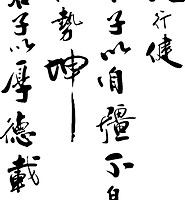 行健
子以自彊不
勢坤
子以厚德載